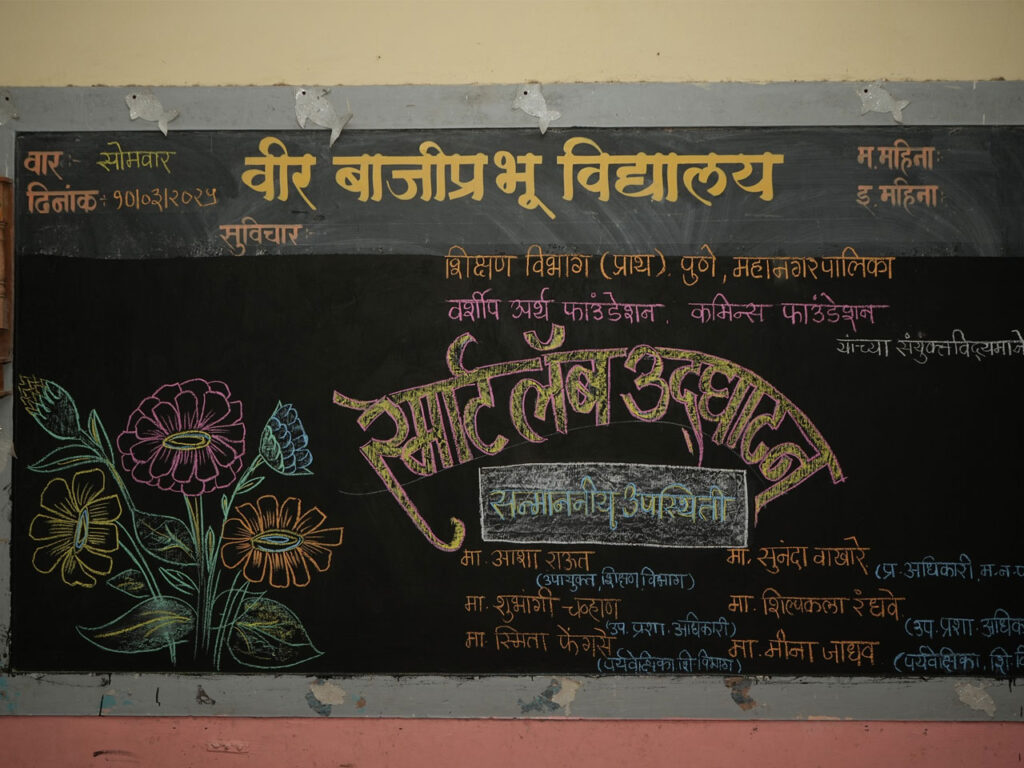 वार : सोमवार
वीर बाजीप्रभू विद्यालय
म. महिना :
दिनांक : १०/०३/२०२५
इ. महिना :
सुविचार :
शिक्षण विभाग (प्राथ). पुणे, महानगरपालिका
वर्शीप अर्थ फाउंडेशन. कमिन्स फाउंडेशन
यांच्या संयुक्त विद्यमाने
स्मार्ट लॅब उद्घाटन
सन्माननीय उपस्थिती
मा. आशा राऊत
(उपायुक्त, शिक्षण विभाग)
मा. सुनंदा वाखारे
(प्र. अधिकारी, म.न.प
मा. शुभांगी चव्हाण
(उप. प्रशा. अधिकारी)
मा. शिल्पकला रंधवे
(उप. प्रशा. अधिक
मा. स्मिता फेंगसे
(पर्यवेक्षिका शि. विभाग)
मा. मीना जाधव
(पर्यवेक्षिका, शि. वि